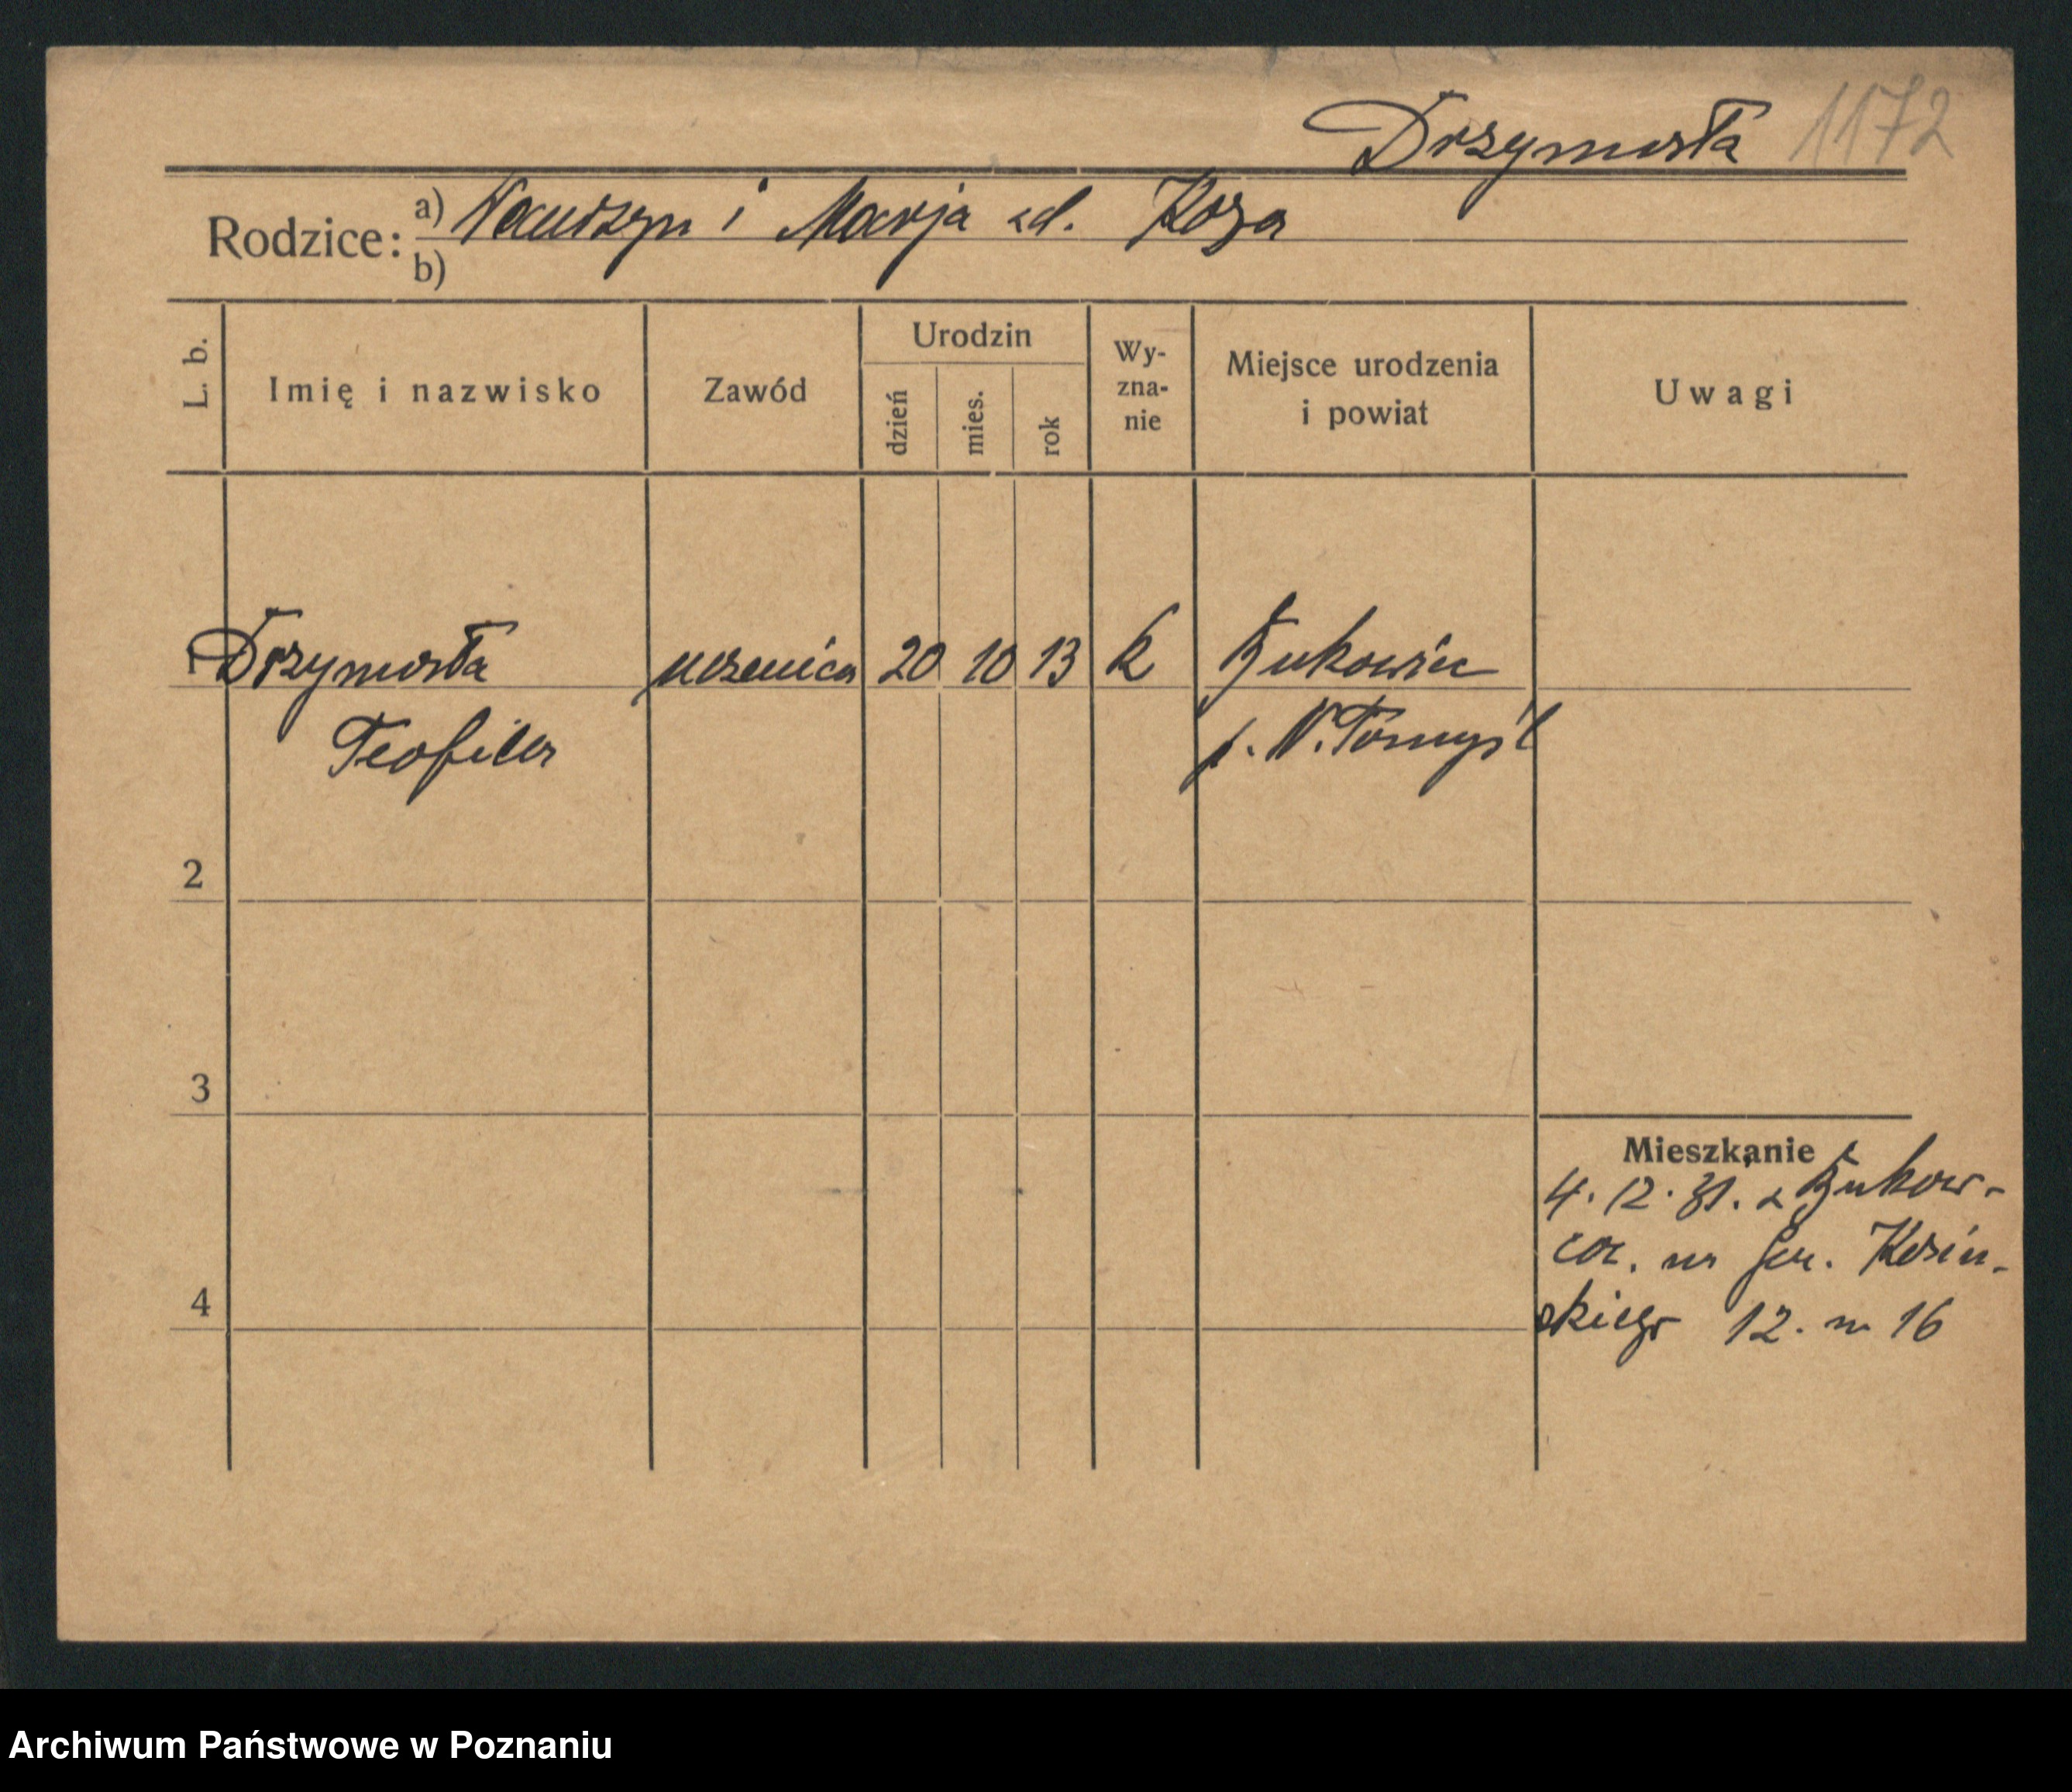 Drzymała 1172
Rodzice: a) Wawrzyn i Marja zd. Koza
b)
L. b. Imię i nazwisko Zawód Urodzin dzień mies. rok Wy-zna-nie Miejsce urodzenia i powiat Uwagi
1 Drzymała uczenica 20 10 13 k Bukowiec
Teofila p. N. Tomyśl
2
3
Mieszkanie
4. 12. 31. z Bukow-
ca. na Kosin-
4 skiego 12. m 16
Archiwum Państwowe w Poznaniu